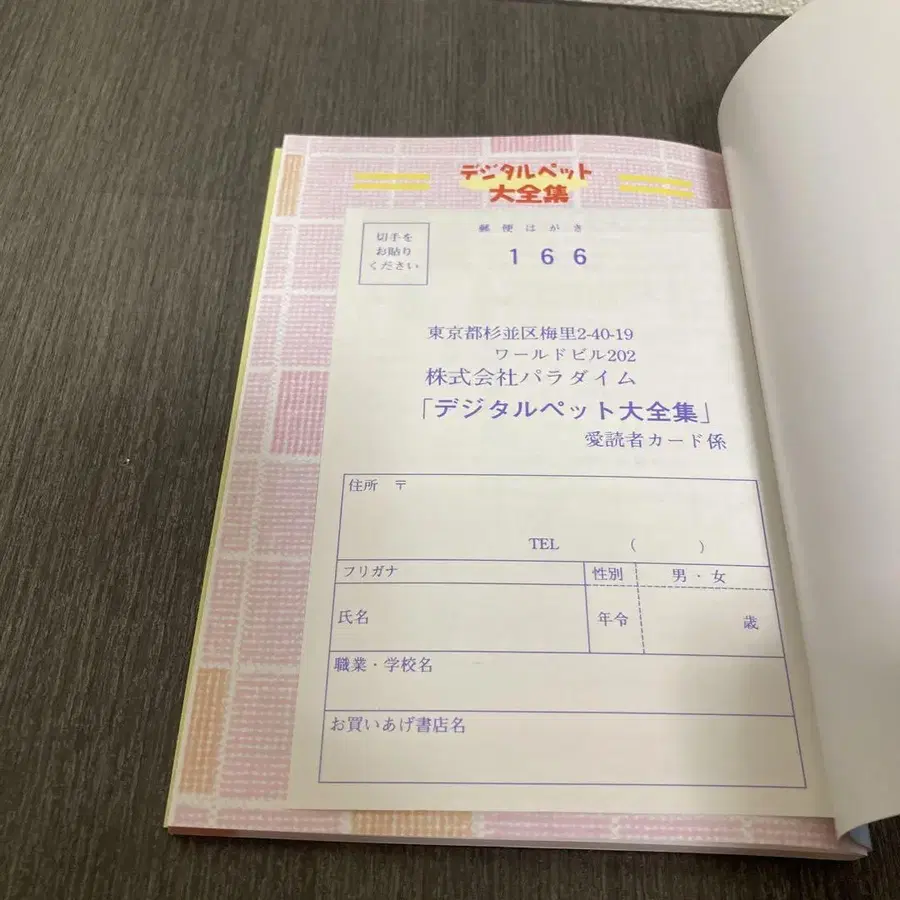 デジタルペット
大全集
切手を
お貼り
ください
郵便はがき
166
東京都杉並区梅里2-40-19
ワールドビル202
株式会社パラダイム
「デジタルペット大全集」
愛読者カード係
住所 〒
TEL ( )
フリガナ
性別 男・女
氏名
年令 歳
職業・学校名
お買いあげ書店名